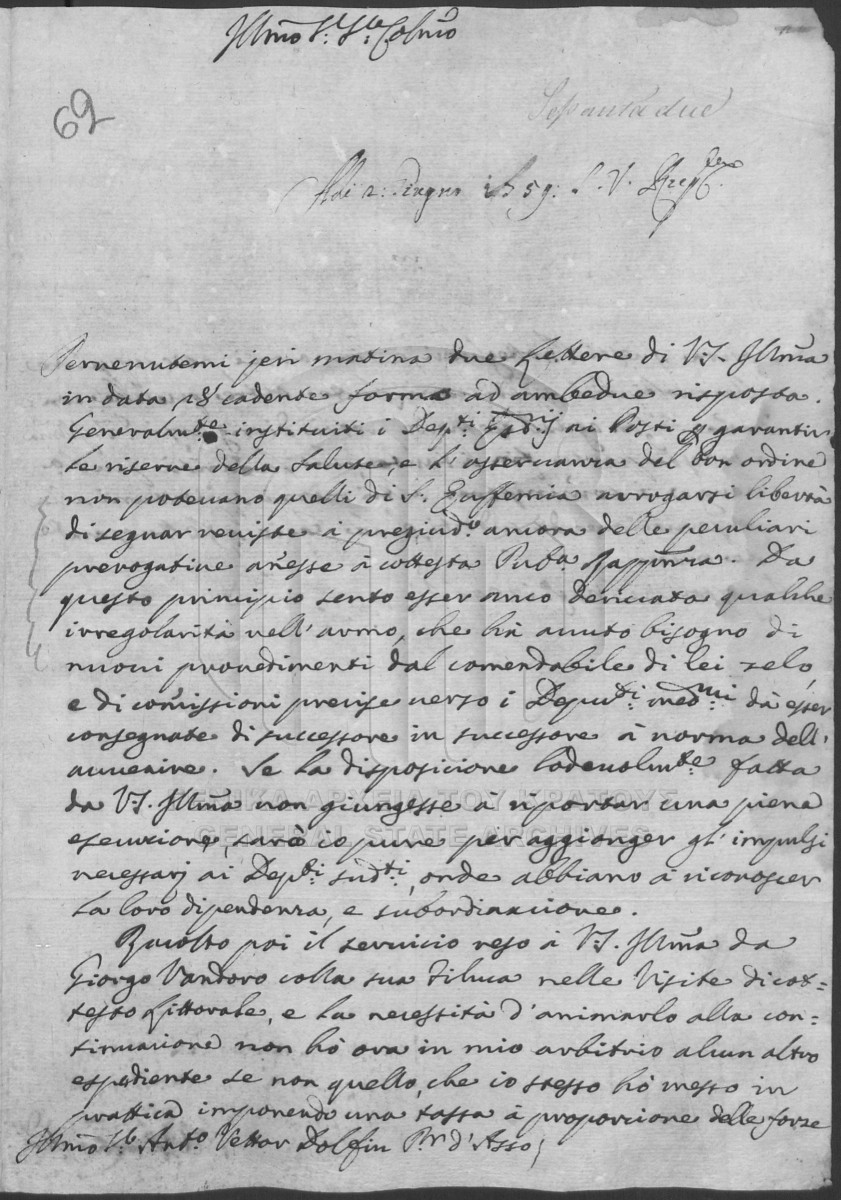 Illmo Sr Sre Colmo
69
Sessantadue
Adi 2: Giugno 1759: S. V.
Pervenutemi jeri matina due Lettere di V.S. Illma
in data 18 cadente formo ad ambedue risposta.
Generalmte instituiti i Depti ai Posti p garantir
le riserve della Salute, e l'osservanza del bon ordine
non potevano quelli di S. Euffemia arrogarsi libertà
di segnar reviste à pregiudo ancora delle peculiari
prerogative anesse à cottesta Puba Rappnza. Da
questo principio sento esser anco derivata qualche
irregolarità nell'armo, che hà avuto bisogno di
nuovi provedimenti dal comendabile di lei zelo,
e di comissioni precise verso i Deputi medmi dà esser
consegnate di successore in successore à norma dell'
avvenire. Se la disposicione lodevolmte fatta
da V.S. Illma non giungesse à riportar una piena
esecuzione, sarò io pure per aggionger gl'impulsi
necessarj ai Depti sudti, onde abbiano à riconoscer
la loro dipendenza, e subordinazione.
Raccolto poi il servicio reso à V.S. Illma da
Giorgo Vandoro colla sua Filuca nelle Visite di cot=
testo Littorale, e la necessità d'animarlo alla con=
tinuazione non hò ora in mio arbitrio alcun altro
espediente se non quello, che io stesso hò messo in
prattica imponendo una tassa à proporcione delle forze
Illmo Sr Anto Vettor Dolfin Pr d'Asso;
ΓΕΝΙΚΑ ΑΡΧΕΙΑ ΤΟΥ ΚΡΑΤΟΥΣ
GENERAL STATE ARCHIVES